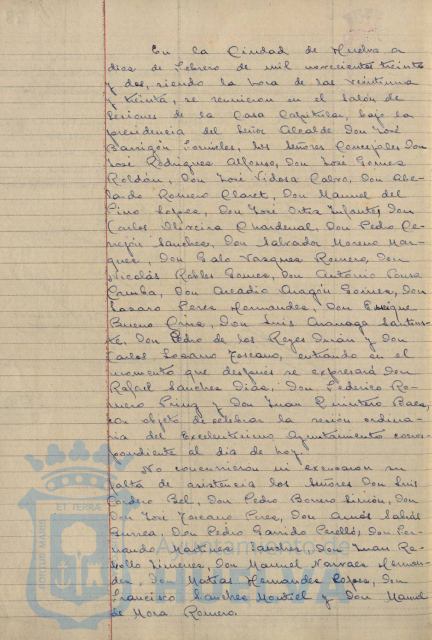 En la Ciudad de Huelva a
diez de Febrero de mil novecientos treinta
y dos, siendo la hora de las veintiuna
y treinta, se reunieron en el salón de
sesiones de la Casa Capitular, bajo la
presidencia del Señor Alcalde Don José
Barrigón Fornieles, los Señores Concejales Don
José Rodríguez Alfonso, Don José Gomez
Roldán, Don José Vidosa Calvo, Don Abe-
lardo Romero Claret, Don Manuel del
Pino Lopez, Don José Ortiz Infantes, Don
Carlos Oliveira Chardenal, Don Pedro Ce-
rrejón Sanchez, Don Salvador Moreno Mar-
quez, Don Galo Vazquez Romero, Don
Nicolás Robles Gomez, Don Antonio Pousa
Camba, Don Arcadio Aragón Gomez, Don
Lazaro Perez Hernandez, Don Enrique
Bueno Cruz, Don Luis
Don Pedro de los Reyes Durán y Don
Carlos Lozano Toscano, entrando en el
momento que después se expresará Don
Rafael Sanchez Diaz, Don Federico Ro-
mero y Don Juan Quintero Baez,
con objeto de celebrar la sesión ordina-
ria del Excelentísimo Ayuntamiento corres-
pondiente al día de hoy.
No concurrieron ni excusaron su
falta de asistencia los Señores Don Luis
Cordero Bel, Don Pedro Borrero Limón, Don
Don José Toscano Perez, Don Amós Sabrás
Gurrea, Don Pedro Garrido Perelló, Don Fer-
nando Martinez Sanchez, Don Juan Re-
bollo Jimenez, Don Manuel Narvaez Hernan-
dez, Don Matias Hernandez Lopez, Don
Francisco Sanchez Montiel y Don Manuel
de Mora Romero.
PORTUS MARIS
ET TERRAE
Ayuntamiento de
HUELVA